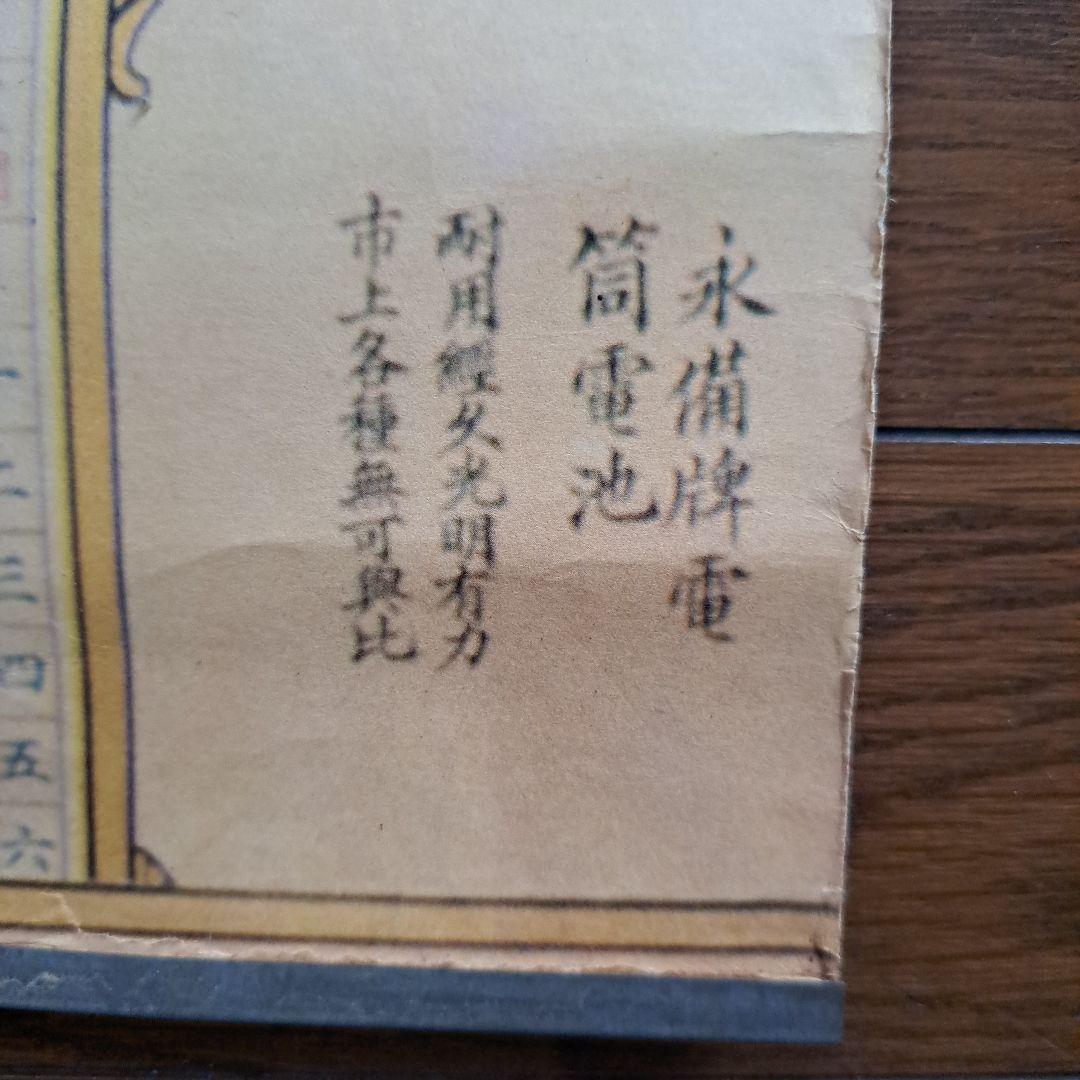 永備牌電
筒電池
耐用經久光明有力
市上各種無可與比
一
二
三
四
五
六